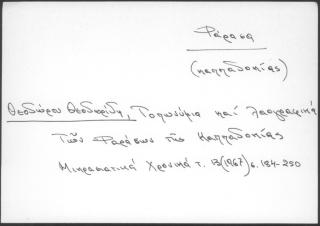 Φάρασα
(Καππαδοκίας)
Θεοδώρου Θεοδωρίδη, Τοπωνύμια καί λαογραφικά
Τῶν Φαράσων τῆς Καππαδοκίας
Μικρασιατικά Χρονικά τ. 13(1967) σ. 184-250